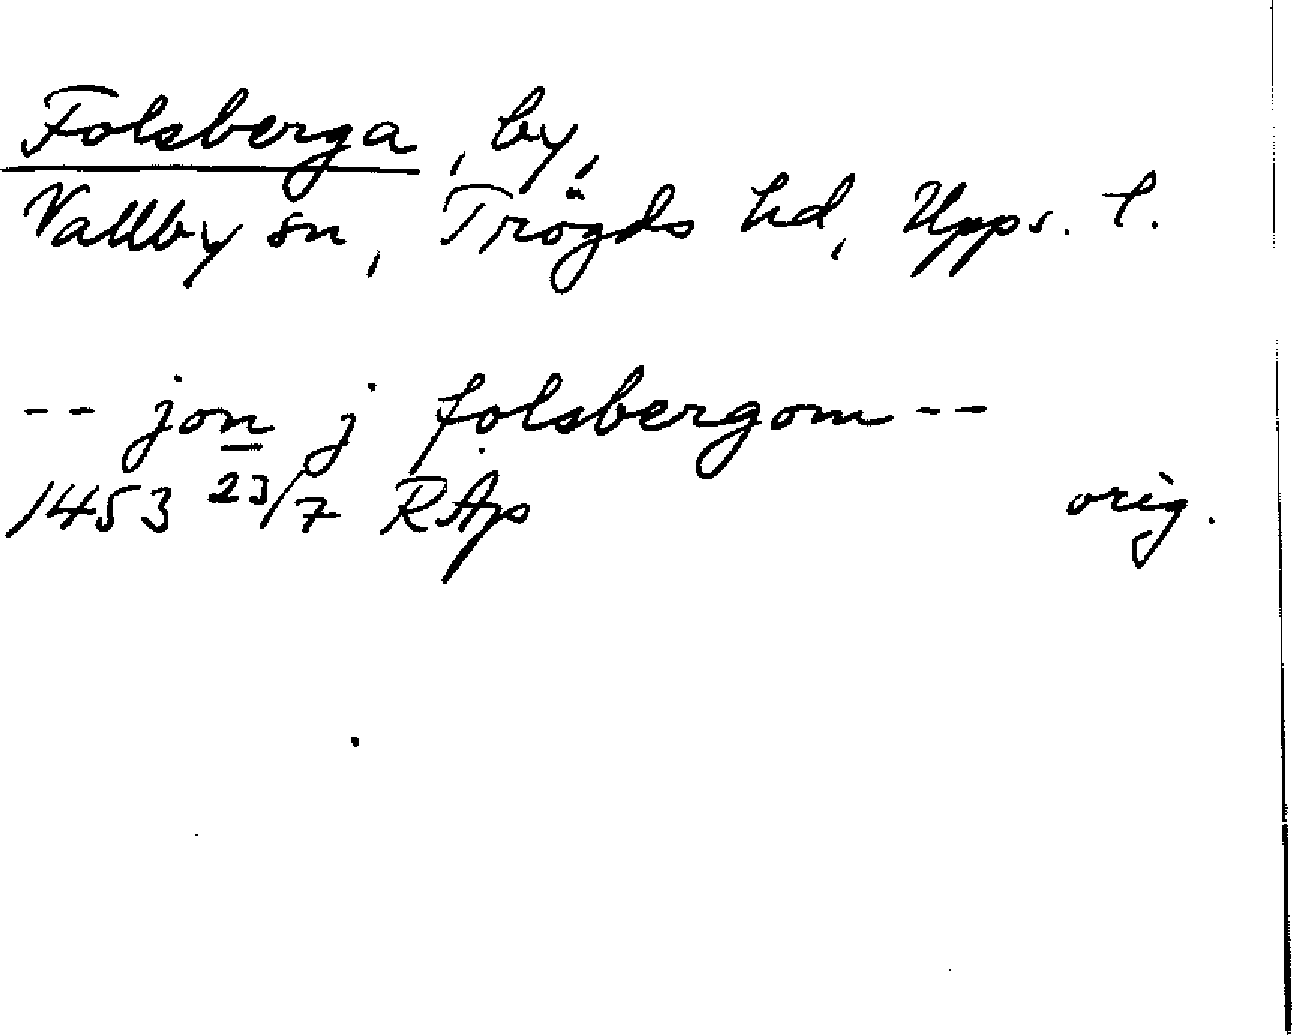 Folsberga, by,
Vallby sn, Trögds hd, Upps. l.
-- jon j folsbergom --
1453 23/7 RAp orig.